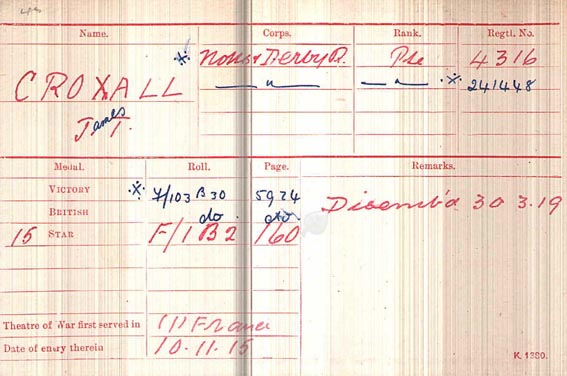 Name. Corps. Rank. Regtl. No.
CROXALL ※ Notts & Derby R. Pte 4316
James T. —〃— —〃— ※ 241448
Medal. Roll. Page. Remarks.
VICTORY ※ F/103 B30 5924 Disemb'd 30 3.19
BRITISH do do
15 STAR F/1 B2 160
Theatre of War first served in (1) France
Date of entry therein 10.11.15
K. 1380.